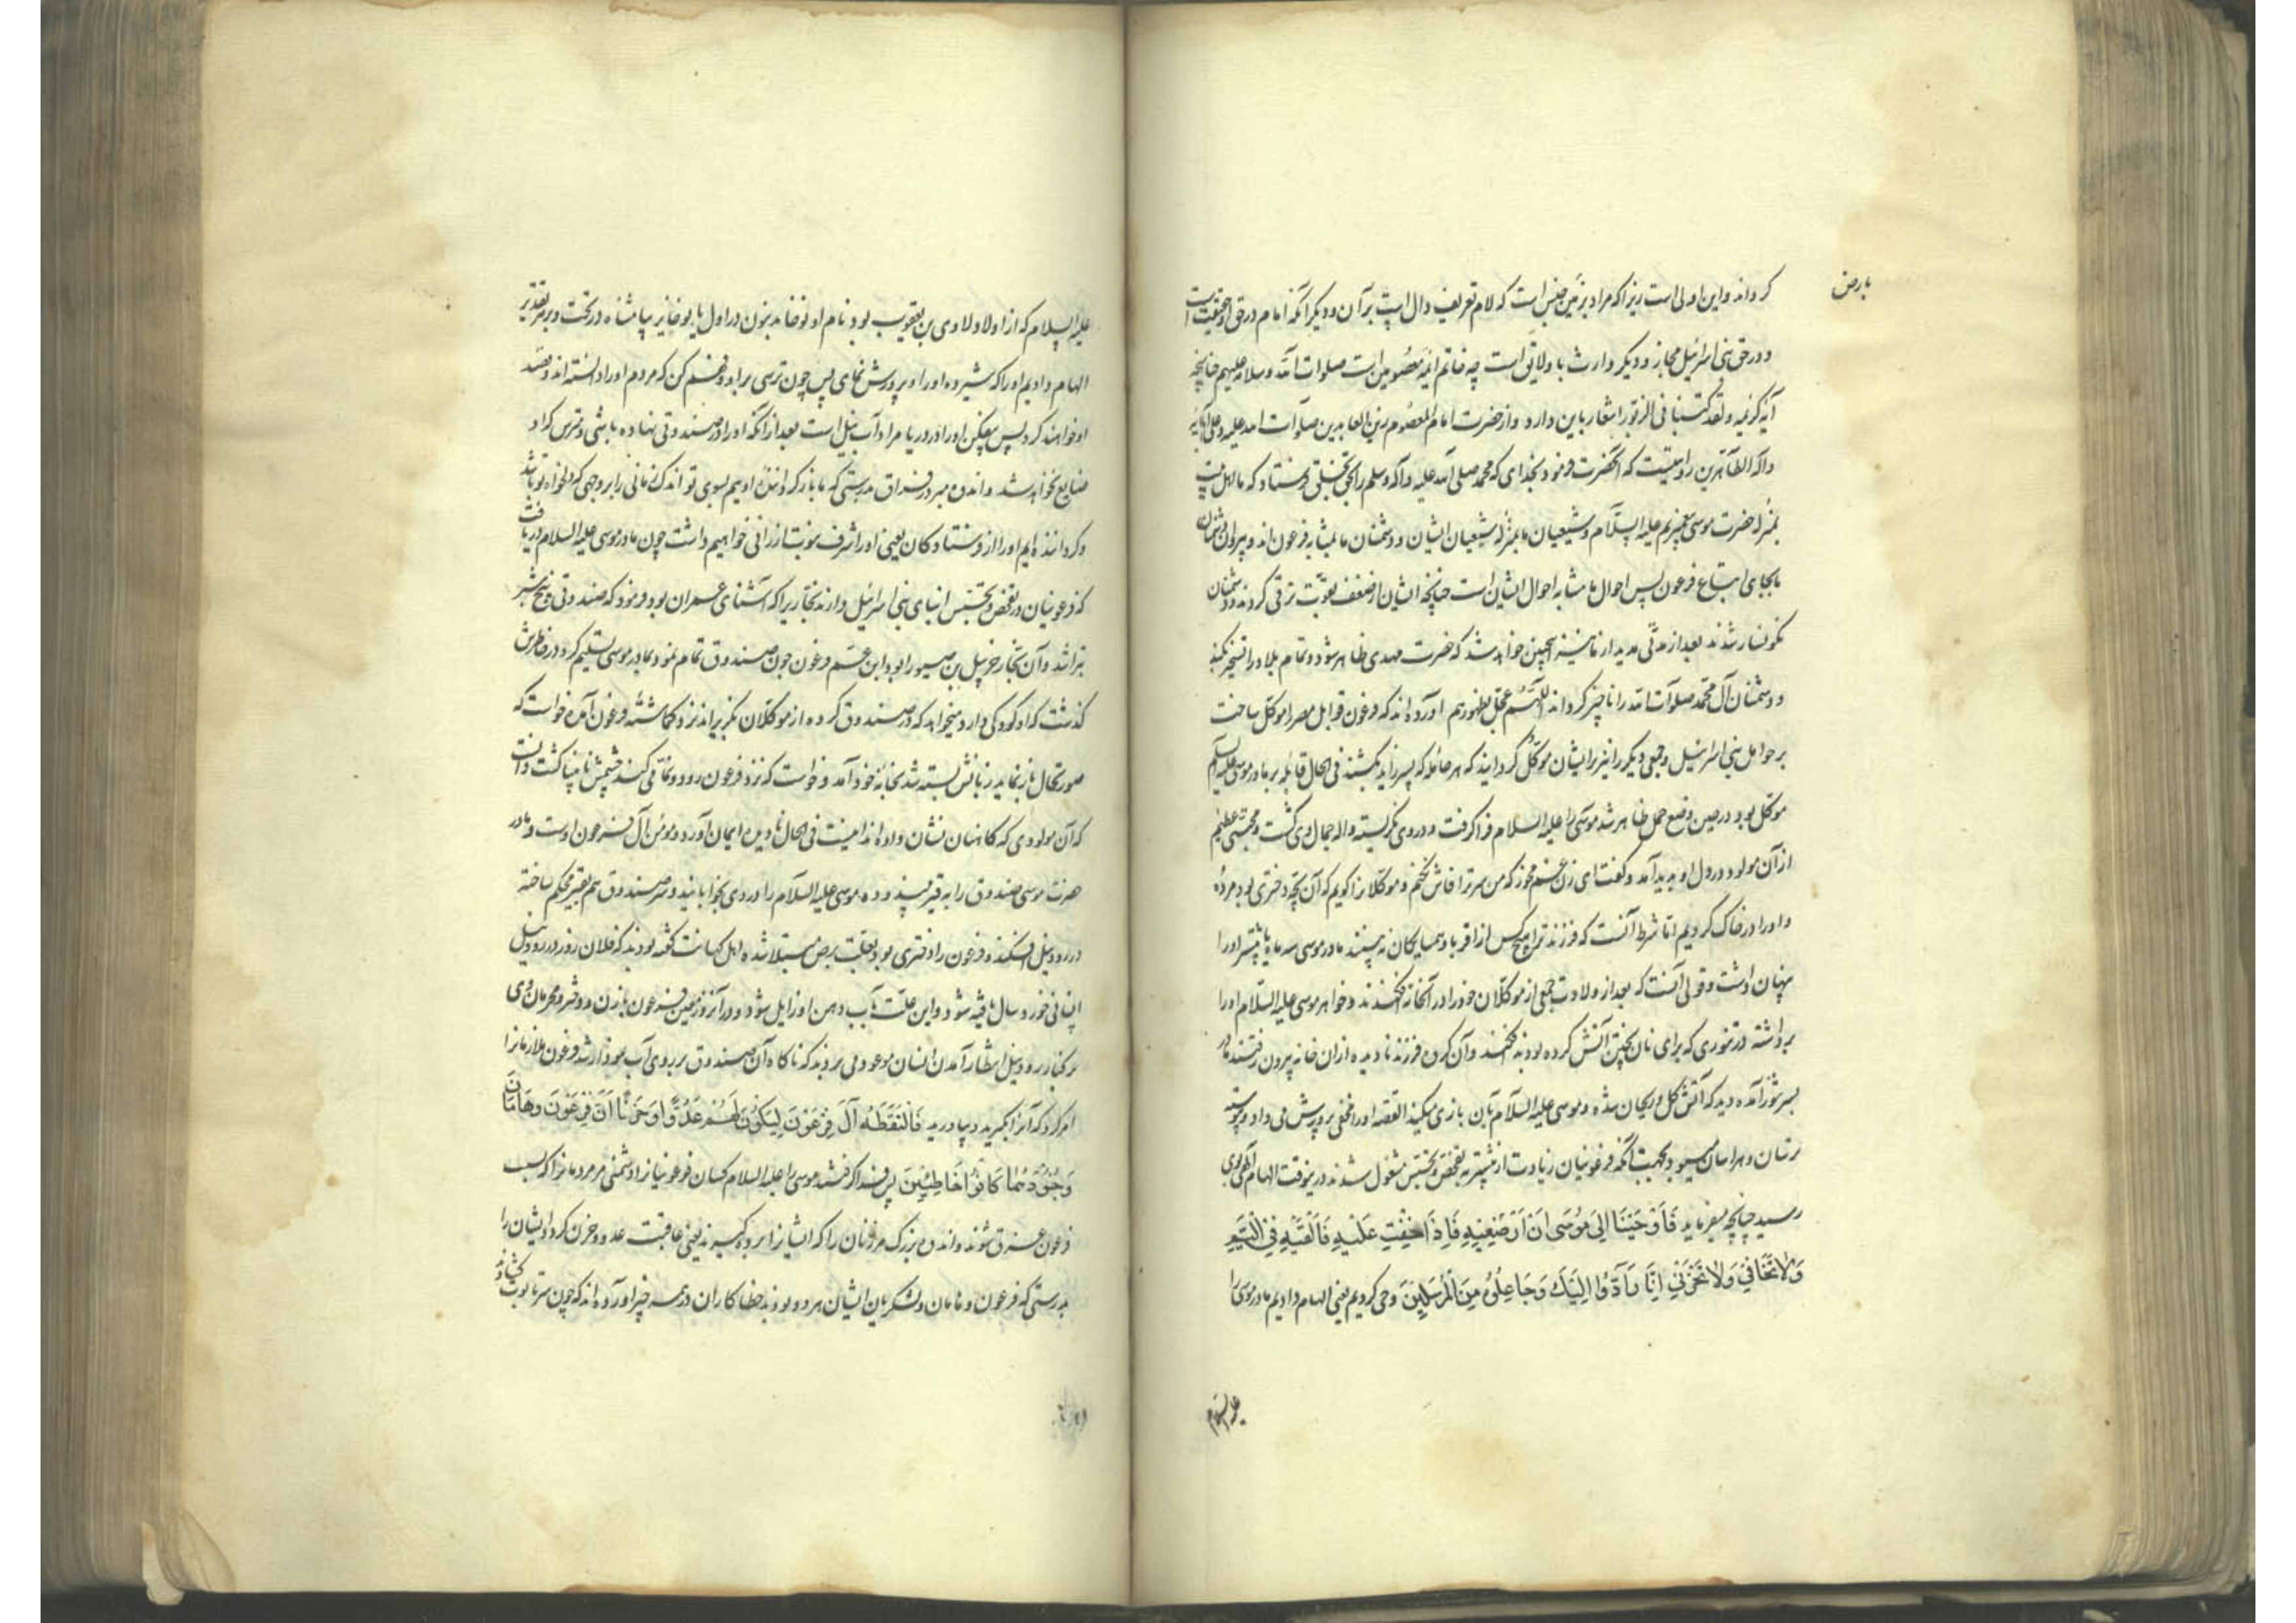 بارض
کرداند واین اولی است زیرا که مراد بزمین جنس است که لام تعریف دال است بر آن و دیگر آنکه امام در حق او حقیقت است
و در حق بنی اسرائیل مجاز و دیگر وارث باولایق است چه خاتم ائمه معصومین است صلوات الله وسلامه علیهم چنانچه
آیه کریمه ولقد کتبنا فی الزبور اشعار باین دارد و از حضرت امام المعصوم زین العابدین صلوات الله علیه وعلی آبائه
واله الطاهرین روایتست که آنحضرت فرمود بخدای که محمد صلی الله علیه وآله وسلم را بحق بخلق فرستاد که ما اهل بیت
بمنزله حضرت موسی پیغمبریم علیه السلام و شیعیان ما بمنزله شیعیان ایشان و دشمنان ما بمثابه فرعون اند و پیروان دشمنان
ما بجای اتباع فرعون پس احوال ما مشابه احوال ایشان است چنانچه ایشان از ضعف بقوت ترقی کردند و دشمنان
نکونسار شدند بعد از مدتی مدید از ما نیز همچنین خواهد شد که حضرت مهدی ظاهر شود و تمام بلاد را تسخیر کند
و دشمنان آل محمد صلوات الله را ناچیز کرداند اللهم عجل بظهورهم آورده اند که فرعون قوابل مصر را موکل ساخت
بر حوامل بنی اسرائیل و جمعی دیگر را نیز برایشان موکل کردانید که هر حامله که پسر زاید بکشند فی الحال قابله بر مادر موسی علیه السلام
موکل بود در حین وضع حمل ظاهر شد موسی را علیه السلام فرا گرفت و در وی نکریسته واله جمال وی کشت و محبتی عظیم
از آن مولود در دل او پدید آمد و گفت ای زن غم مخور که من سر ترا فاش نکنم و موکلانرا کویم که آن بچه دختری بود مرده
و او را در خاک کردیم اما شرط آنست که فرزند ترا هیچ کس از اقربا و همسایکان نه بیند مادر موسی سه ماه یا بیشتر او را
پنهان داشت و قولی آنست که بعد از ولادت جمعی از موکلان خود را در آنخانه فکندند و خواهر موسی علیه السلام او را
برداشته در تنوری که برای نان پختن آتش کرده بودند فکند و آن گروه فرزند نادیده از ان خانه بیرون رفتند مادر
بسر تنور آمده دید که آتش گل و ریحان شده و موسی علیه السلام بآن بازی میکند القصه او را مخفی پرورش می داد و پیوسته
ترسان و هراسان میبود بجهت آنکه فرعونیان زیادت از پیشتر به تفحص و تجسس مشغول شدند درینوقت الهام الهی بوی
رسید چنانچه میفرماید فَاَوْحَيْنَا اِلىَ مُوْسَى اَنْ اَرْضِعِيْهِ فَاِذَا خِفْتِ عَلَيْهِ فَاَلْقِيْهِ فِى الْيَمِّ
وَلَا تَخَافِىْ وَلَا تَحْزَنِىْ اِنَّا رَآدُّوْهُ اِلَيْكَ وَجَاعِلُوْهُ مِنَ الْمُرْسَلِيْنَ وحی کردیم یعنی الهام دادیم مادر موسی را
علیه السلام
علیه السلام که از اولاد لاوی بن یعقوب بود نام او نوخاند بنون در اول یا یوخابز بیا مثناه در تحت و بر هر تقدیر
الهام دادیم او را که شیر ده او را و پرورش نمای پس چون ترسی بر او و فهم کن که مردم او را دانسته اند و قصد
او خواهند کرد پس بیفکن او را در دریا مراد آب نیل است بعد از آنکه او را در صندوقی نهاده باشی و مترس که او
ضایع نخواهد شد و اندوه مبر در فراق بدرستی که ما باز گرداننده اوییم بسوی تو اندک زمانی را بر وجهی که دلخواه تو باشد
و کرداننده ایم او را از فرستادگان یعنی او را شرف نبوت ارزانی خواهیم داشت چون مادر موسی علیه السلام دریافت
که فرعونیان در تفحص و تجسس ابنای بنی اسرائیل دارند نجاریرا که آشنای عمران بود فرمود که صندوقی پنج شبر
بتراشد و آن نجار خربیل بن صبورا بود ابن عم فرعون چون صندوق تمام نمود بمادر موسی تسلیم کرد در خاطرش
گذشت که او کودکی دارد میخواهد که در صندوق کرده از موکلان بگریزاند نزد گماشته فرعون آمده خواست که
صورتحال باز نماید زبانش بسته شد بخانه خود آمد و خواست که نزد فرعون رود و غمازی کند چشمش نابینا گشت دانست
که آن مولودی که کاهنان نشان داده اند اینست فی الحال نادیده ایمان آورد و مومن آل فرعون اوست و مادر
حضرت موسی صندوق را به قیر بیندوده موسی علیه السلام را در وی بخوابانید و سر صندوق هم بقیر محکم ساخته
در رود نیل افکند و فرعون را دختری بود بعلت برص مبتلا شده اهل کهانت گفته بودند که فلان روز در رود نیل
انسانی خورد سال یافته شود و این علت بآب دهن او زایل شود و در آنروز معین فرعون با زن و دختر و محرمان وی
بر کنار رود نیل انتظار آمدن انسان موعود می بردند که ناگاه آن صندوق بر روی آب نمودار شد فرعون ملازمانرا
امر کرد که آنرا بگیرید و بیاورید فَالْتَقَطَهُ آلُ فِرْعَوْنَ لِيَكُوْنَ لَهُمْ عَدُوًّا وَحَزَنًا اَنَّ فِرْعَوْنَ وَهَامَانَ
وَجُنُوْدَهُمَا كَانُوْا خَاطِئِيْنَ پس فرا گرفتند موسی را علیه السلام کسان فرعون تا باشد دشمنی مر مردمانرا که بسبب
فرعون غرق شوند و اندوه بزرگ مر زنان را که ایشانرا برده گیرند یعنی عاقبت عدو و حزن کرد ایشان را
بدرستی که فرعون و هامان و لشکریان ایشان هر دو بودند خطا کاران در همه چیز آورده اند که چون سر تابوت گشادند